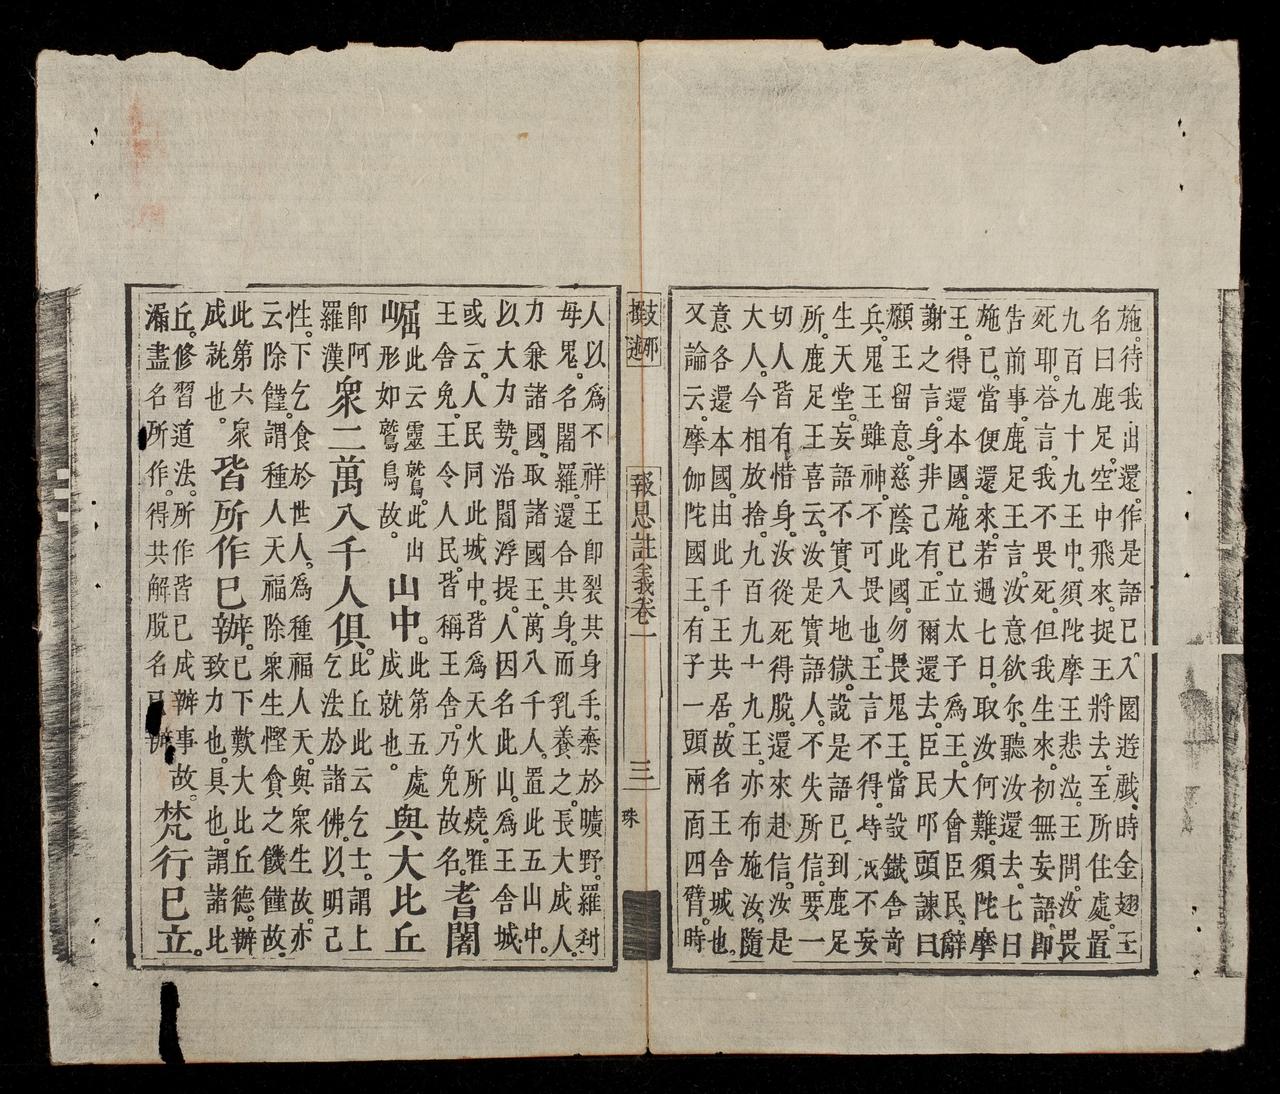 施。待我出還。作是語已。入園遊戲。時金翅王
名曰鹿足。空中飛來。捉王將去。至所住處。置
九百九十九王中。須陀摩王悲泣。王問。汝畏
死耶。荅言。我不畏死。但我生來。初無妄語。即
告前事。鹿足王言。汝意欲尔。聽汝還去。七日
施已。當便還來。若過七日。取汝何難。須陀摩
王。得還本國。施已立太子爲王。大會臣民。辭
謝之言。身非己有。正爾還去。臣民叩頭諫曰
願王留意。慈蔭此國。勿畏鬼王。當設鐵舍奇
兵。鬼王雖神。不可畏也。王言不得。不妄
生天堂。妄語不實。入地獄。說是語已。到鹿足
所。鹿足王喜云。汝是實語人。不失所信。要一
切人皆有惜身。汝從死得脫。還來赴信。汝是
大人。今相放捨。九百九十九王。亦布施汝。隨
意各還本國。由此千王共居。故名王舍城也。
又論云。摩伽陀國王。有子一頭兩面四臂。時
支那
撰述
報恩註義卷一
三
珠
人以爲不祥。王即裂其身手。棄於曠野。羅刹
母鬼。名闍羅。還合其身。而乳養之。長大成人。
力兼諸國。取諸國王。萬八千人。置此五山中。
以大力勢。治閻浮提。人因名此山。爲王舍城。
或云。人民同此城中。皆爲天火所燒。唯
王舍免。王令人民。皆稱王舍。乃免故名。
耆闍
崛
此云靈鷲。此山
形如鷲鳥。故。
山中。
此第五處
成就也。
與大比丘
即阿
羅漢
眾二萬八千人俱。
比丘此云乞士。謂上
乞法於諸佛。以明己
性。下乞。食於世人。爲種福人天。與眾生故。亦
云除饉。謂種人天福除眾生慳貪之饑饉故。
此第六眾
成就也。
皆所作已辦。
已下歎大比丘德。辦
致力也。具也。謂諸比
丘。修習道法。所作皆已成辦事故。
漏盡名所作。得共解脫名已辦
梵行已立。